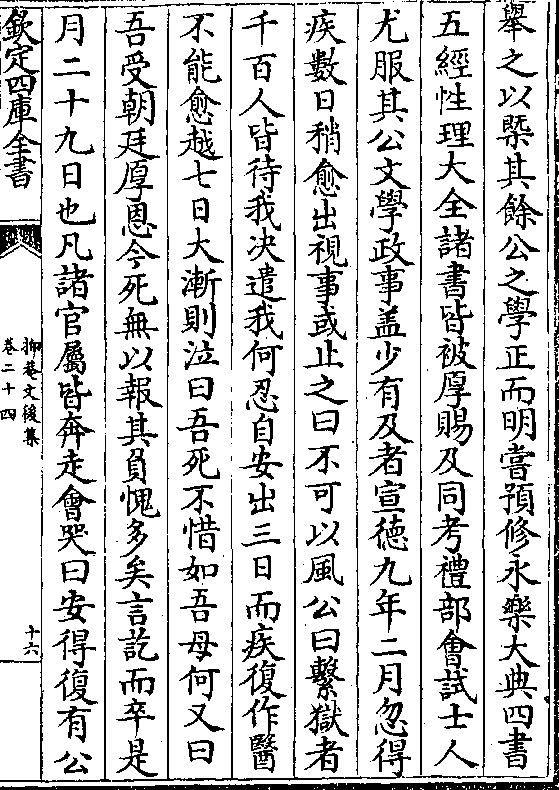 舉之以槩其餘公之學正而明嘗預修永樂大典四書
五經性理大全諸書皆被厚賜及同考禮部會試士人
尤服其公文學政事盖少有及者宣德九年二月忽得
疾數日稍愈出視事或止之曰不可以風公曰繫獄者
千百人皆待我决遣我何忍自安出三日而疾復作醫
不能愈越七日大漸則泣曰吾死不惜如吾母何又曰
吾受朝廷厚恩今死無以報其負愧多矣言訖而卒是
月二十九日也凡諸官屬皆奔走會哭曰安得復有公
欽定四庫全書
抑菴文後集
卷二十四
十六